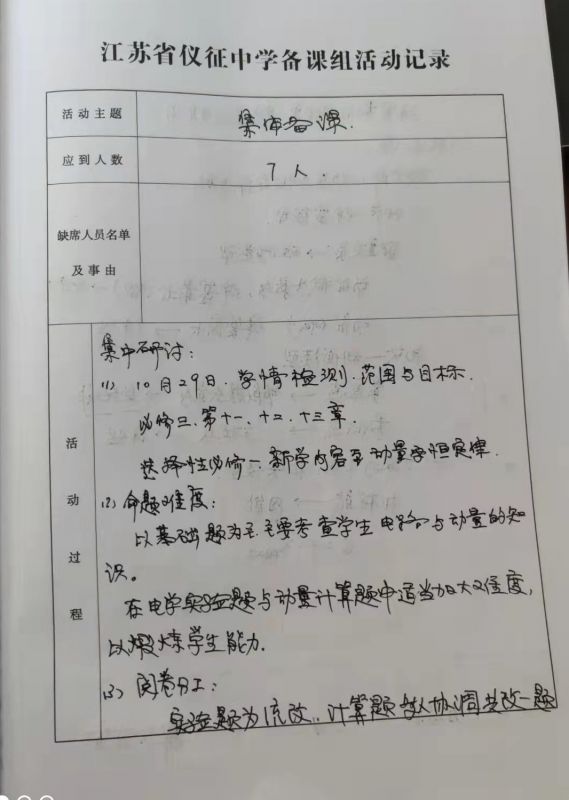 江苏省仪征中学备课组活动记录
活动主题 集体备课.
应到人数 7人
缺席人员名单
及事由
活动过程
集中研讨:
(1) 10月29日. 学情检测.范围与目标.
必修三.第十一、十二、十三章.
选择性必修一.新学内容至动量守恒定律.
(2) 命题难度:
以基础题为主.主要考查学生电路与动量的知
识。
在电学实验题与动量计算题中适当加大难度,
以锻炼学生能力.
(3) 阅卷分工:
实验题为流改..计算题 协调共改一题